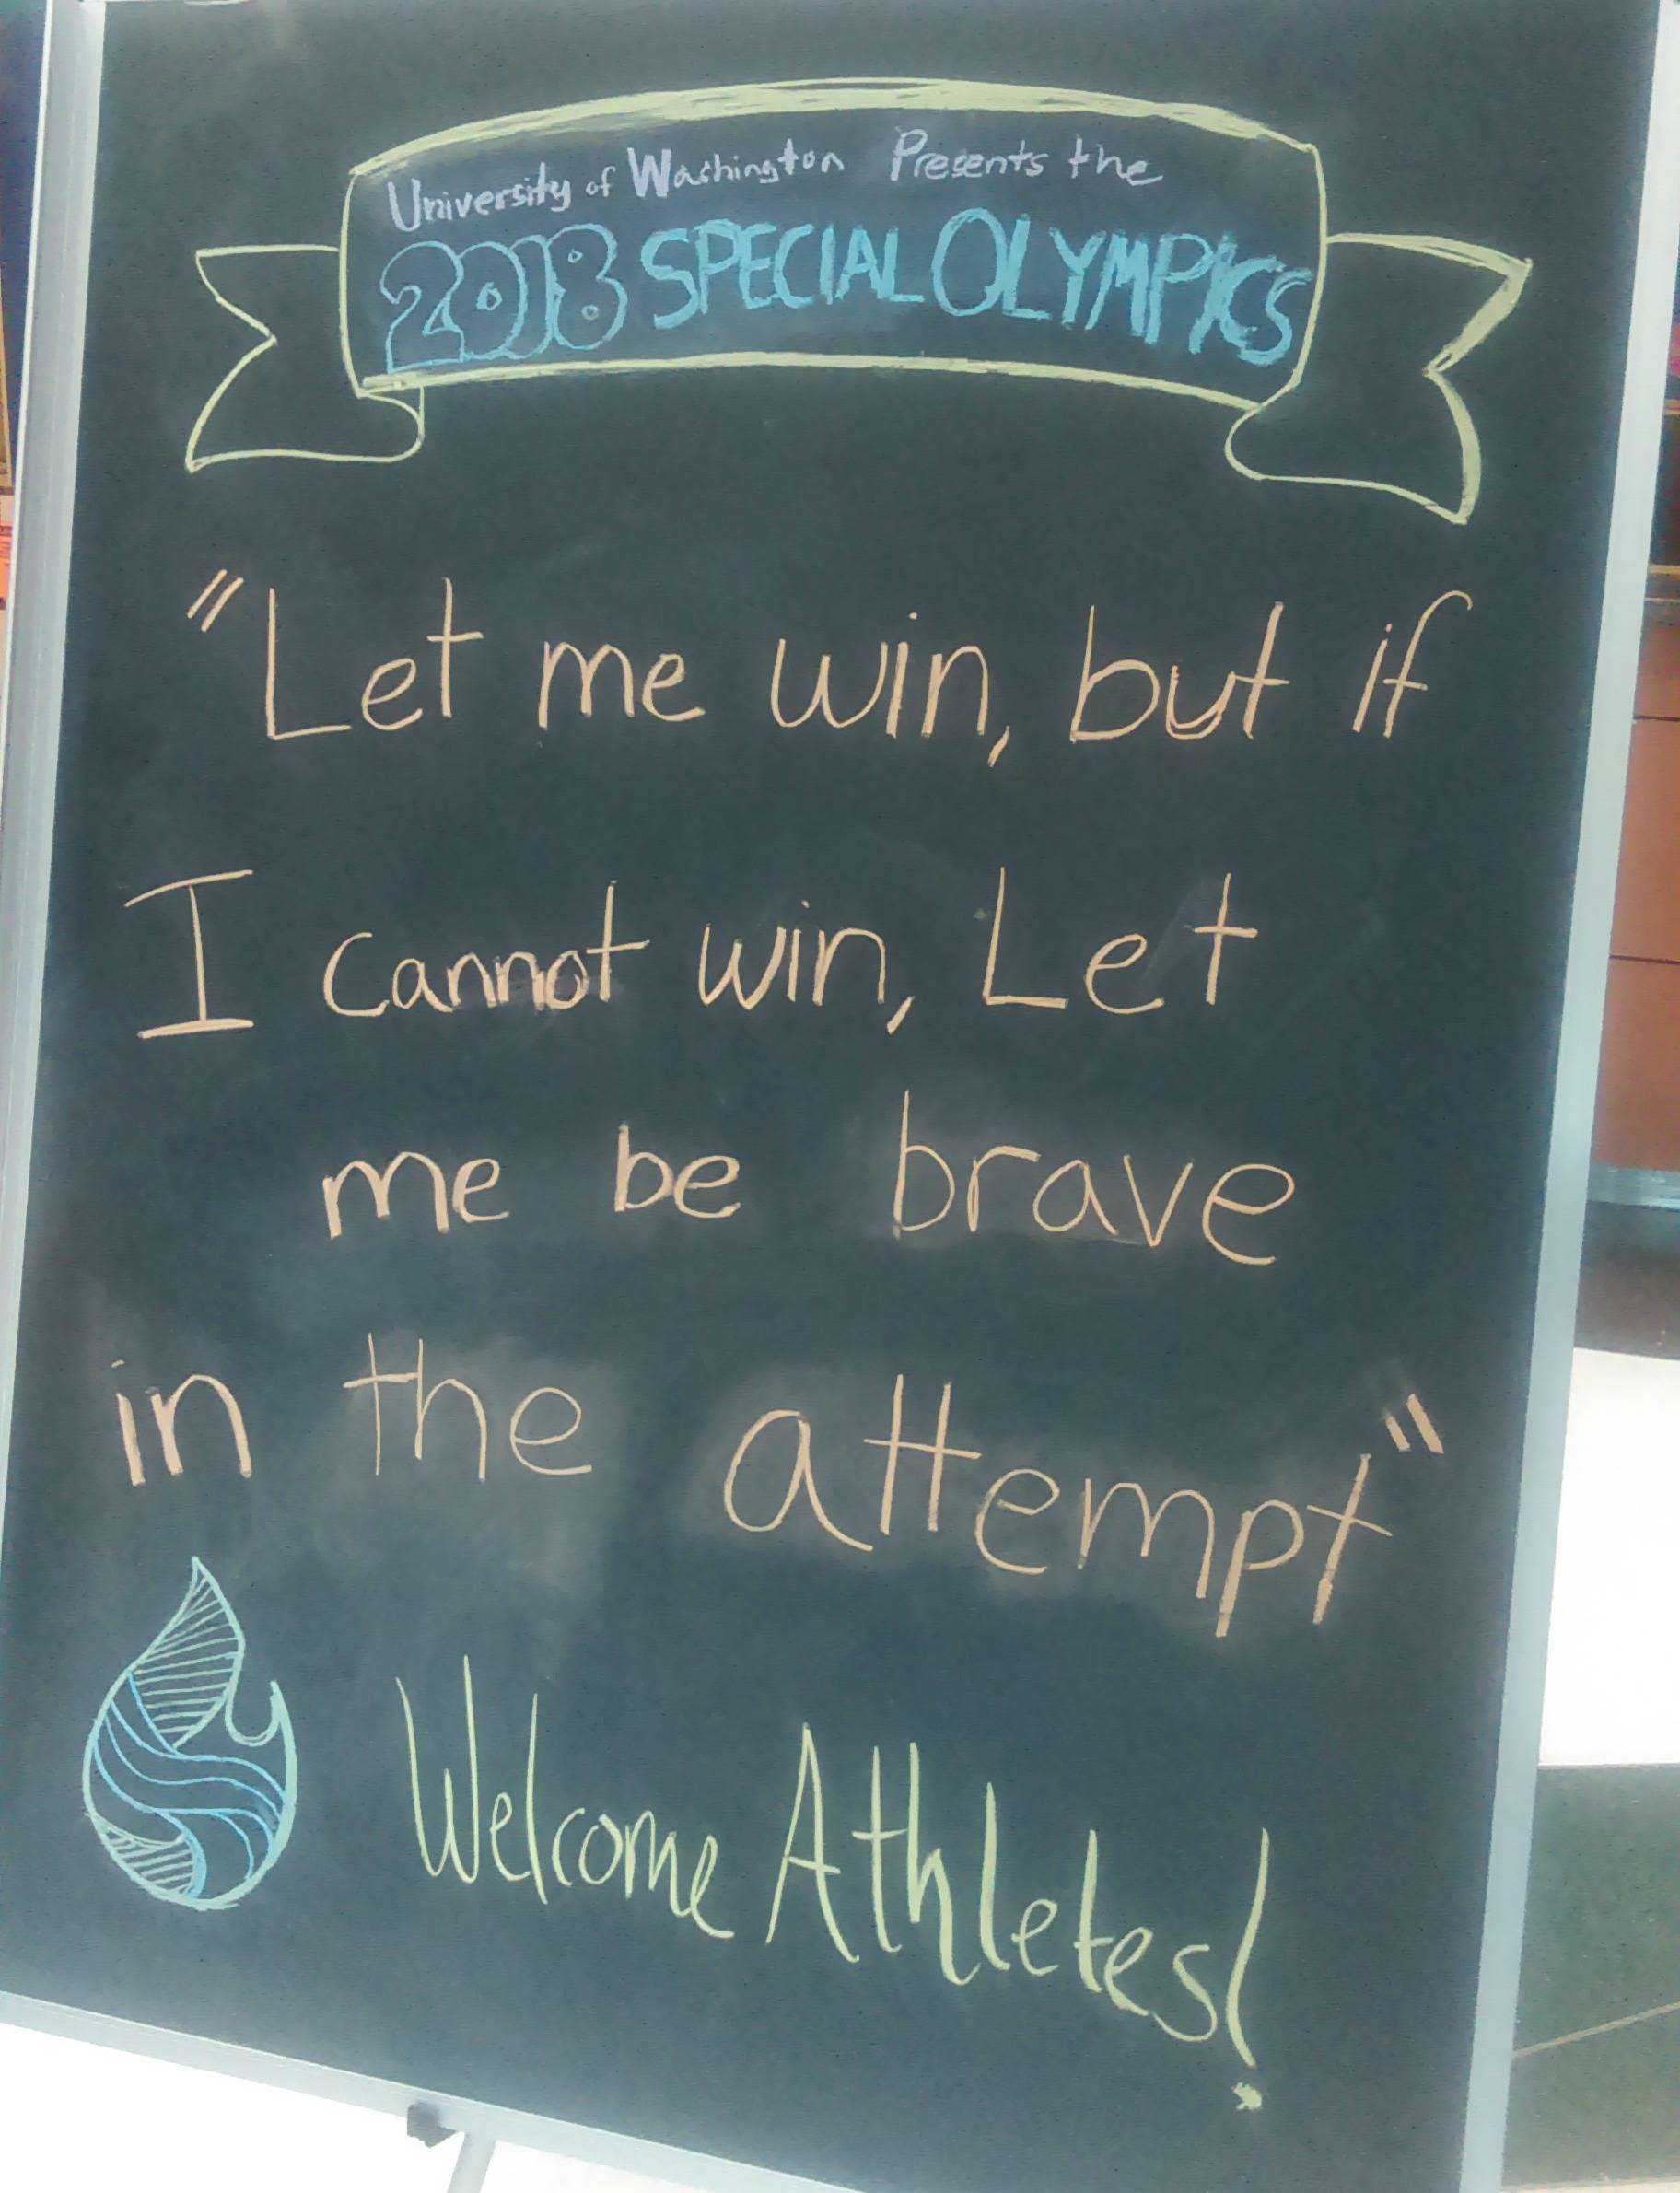 University of Washington Presents the
2018 SPECIAL OLYMPICS
"Let me win, but if
I cannot win, Let
me be brave
in the attempt"
Welcome Athletes!